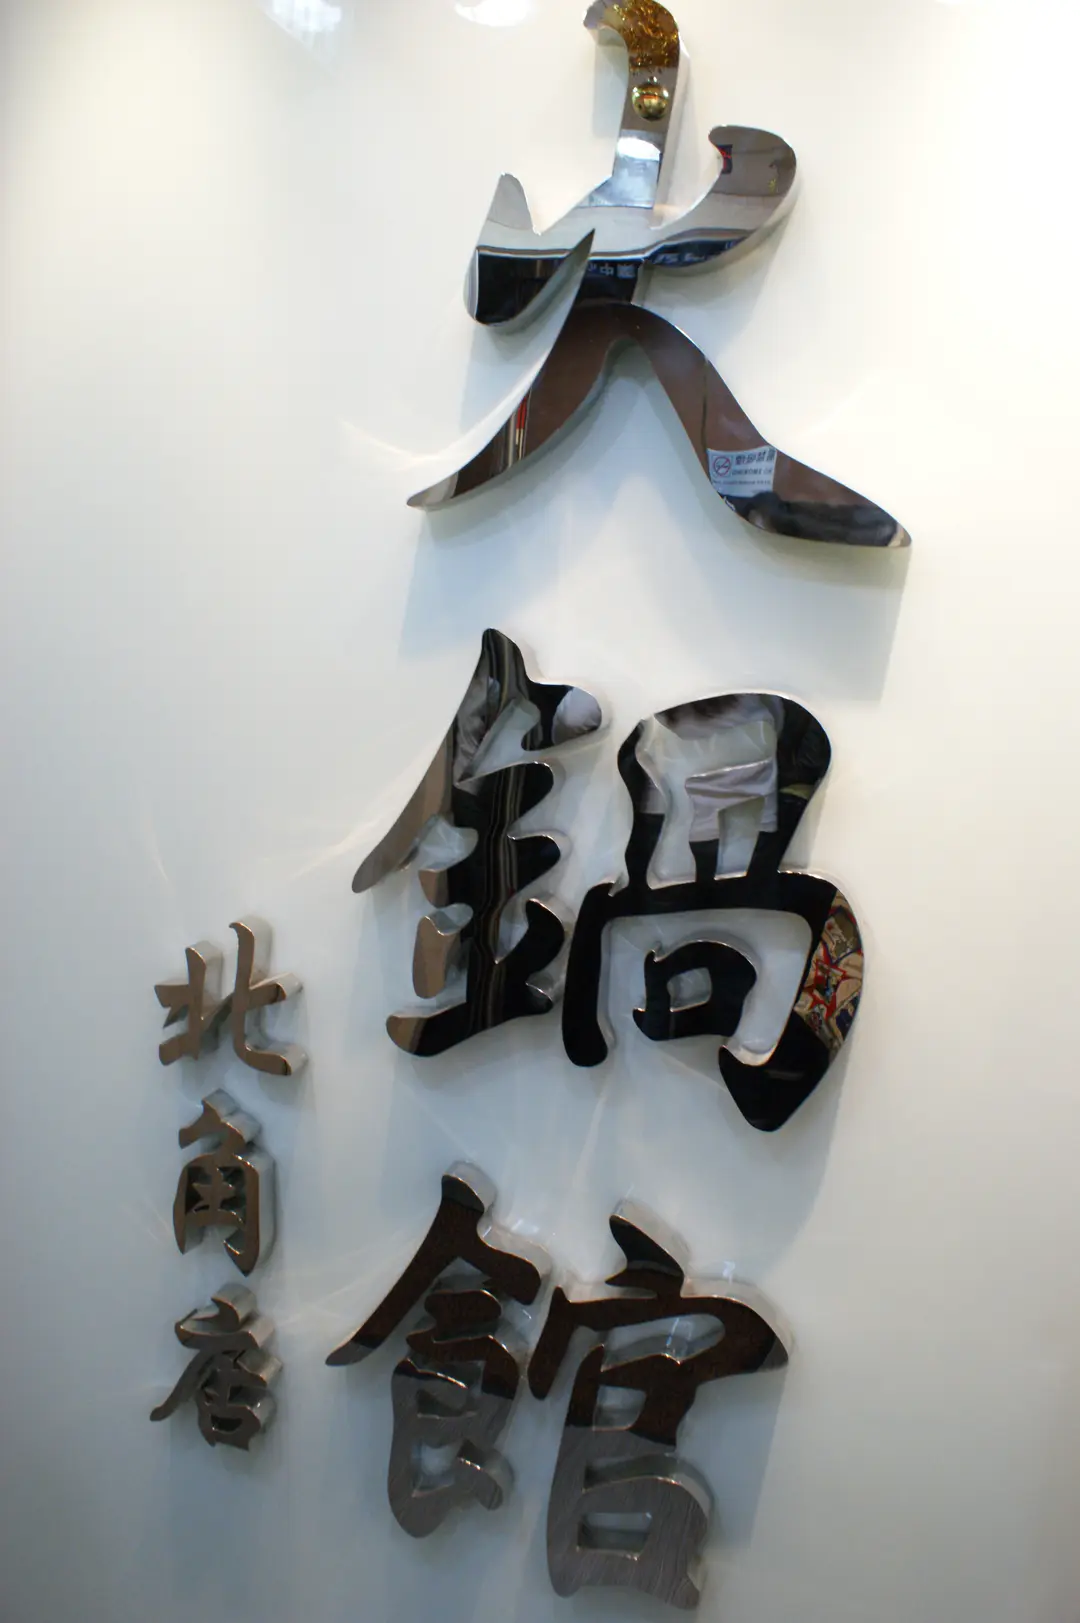 大鍋館
北角店